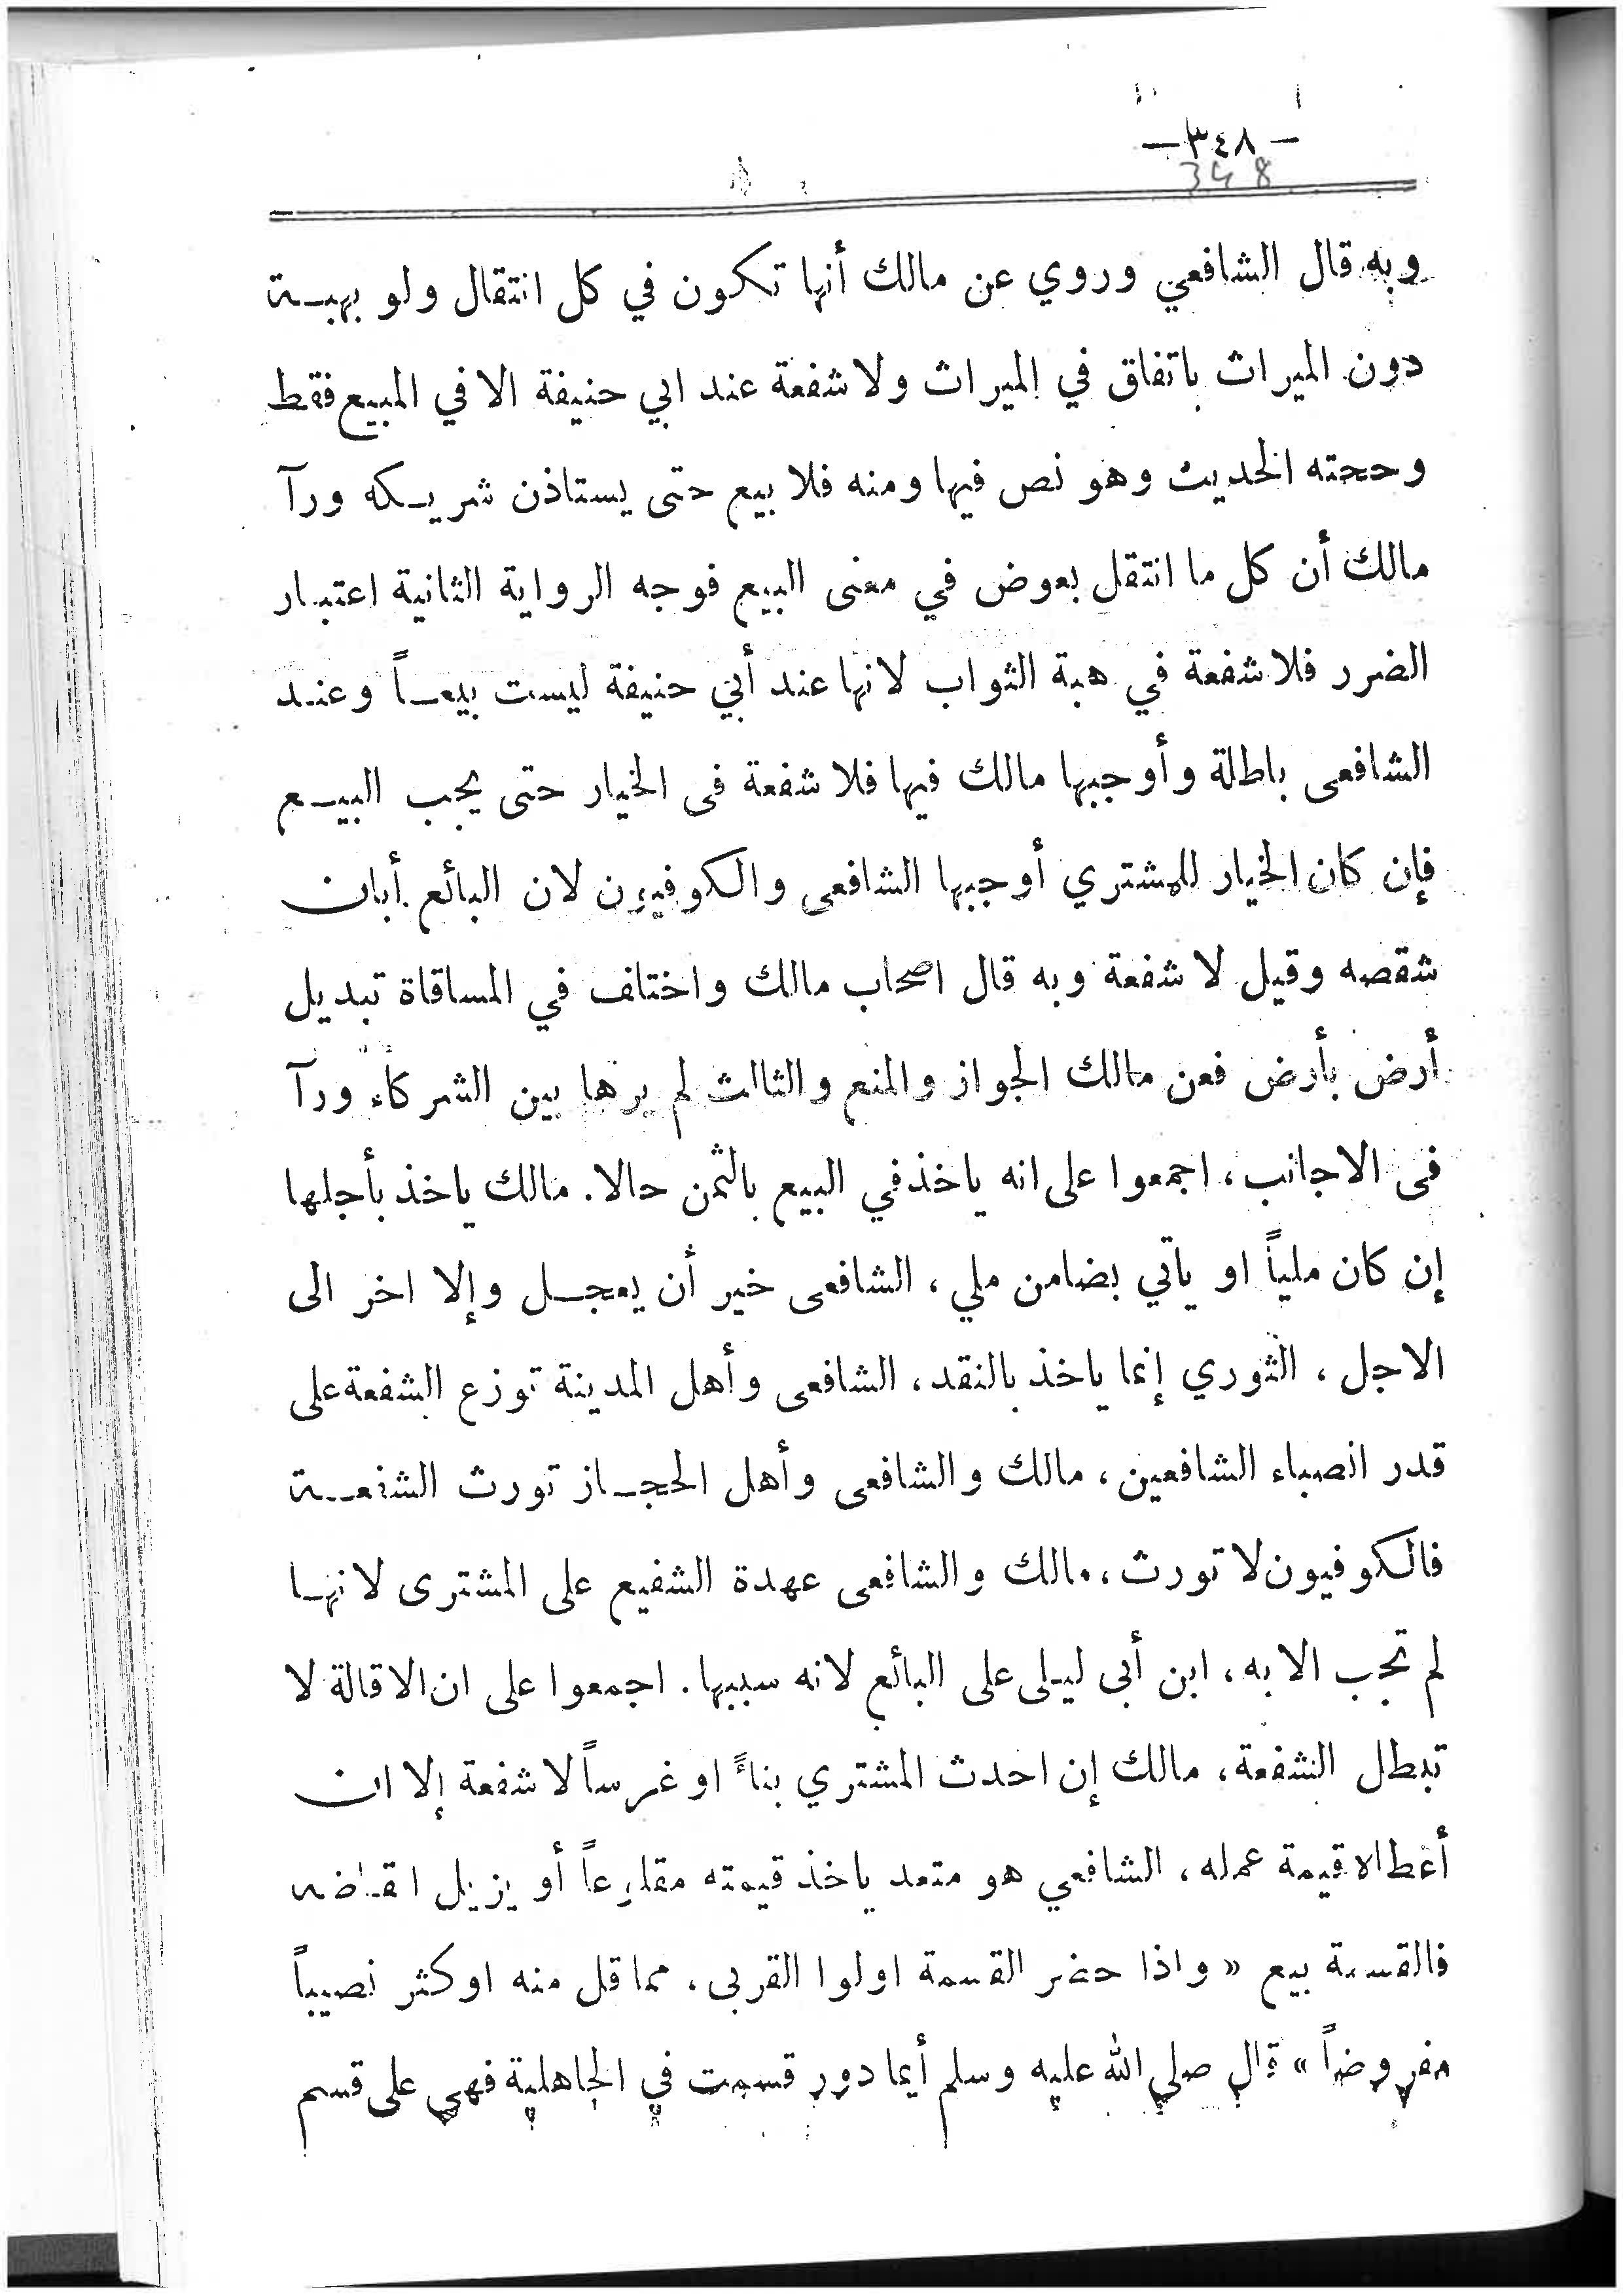 — ٣٤٨ —
348
وبه قال الشافعي وروي عن مالك أنها تكون في كل انتقال ولو بهبة
دون الميراث باتفاق في الميراث ولا شفعة عند ابي حنيفة الا في المبيع فقط
وحجته الحديث وهو نص فيها ومنه فلا بيع حتى يستاذن شريكه ورآ
مالك أن كل ما انتقل بعوض في معنى البيع فوجه الرواية الثانية اعتبار
الضرر فلا شفعة في هبة الثواب لانها عند أبي حنيفة ليست بيعاً وعند
الشافعى باطلة وأوجبها مالك فيها فلا شفعة فى الخيار حتى يجب البيع
فإن كان الخيار للمشتري أوجبها الشافعى والكوفيون لان البائع أبان
شقصه وقيل لا شفعة وبه قال اصحاب مالك واختلف في المساقاة تبديل
أرض بأرض فعن مالك الجواز والمنع والثالث لم يرها بين الشركاء ورآ
فى الاجانب، اجمعوا على انه ياخذ في البيع بالثمن حالا. مالك ياخذ بأجلها
إن كان ملياً او ياتي بضامن ملي، الشافعى خير أن يعجل وإلا اخر الى
الاجل، الثوري إنما ياخذ بالنقد، الشافعى وأهل المدينة توزع الشفعة على
قدر انصباء الشافعين، مالك والشافعى وأهل الحجاز تورث الشفعة
فالكوفيون لا تورث، مالك والشافعى عهدة الشفيع على المشترى لانها
لم تجب الا به، ابن أبى ليلى على البائع لانه سببها. اجمعوا على ان الاقالة لا
تبطل الشفعة، مالك إن احدث المشتري بناءً او غرساً لا شفعة إلا ان
أعطاه قيمة عمله، الشافعي هو متعد ياخذ قيمته مقلوعاً أو يزيل انقاضه
فالقسمة بيع « واذا حضر القسمة اولوا القربى، مما قل منه او كثر نصيباً
مفروضاً » قال صلى الله عليه وسلم أيما دور قسمت في الجاهلية فهي على قسم